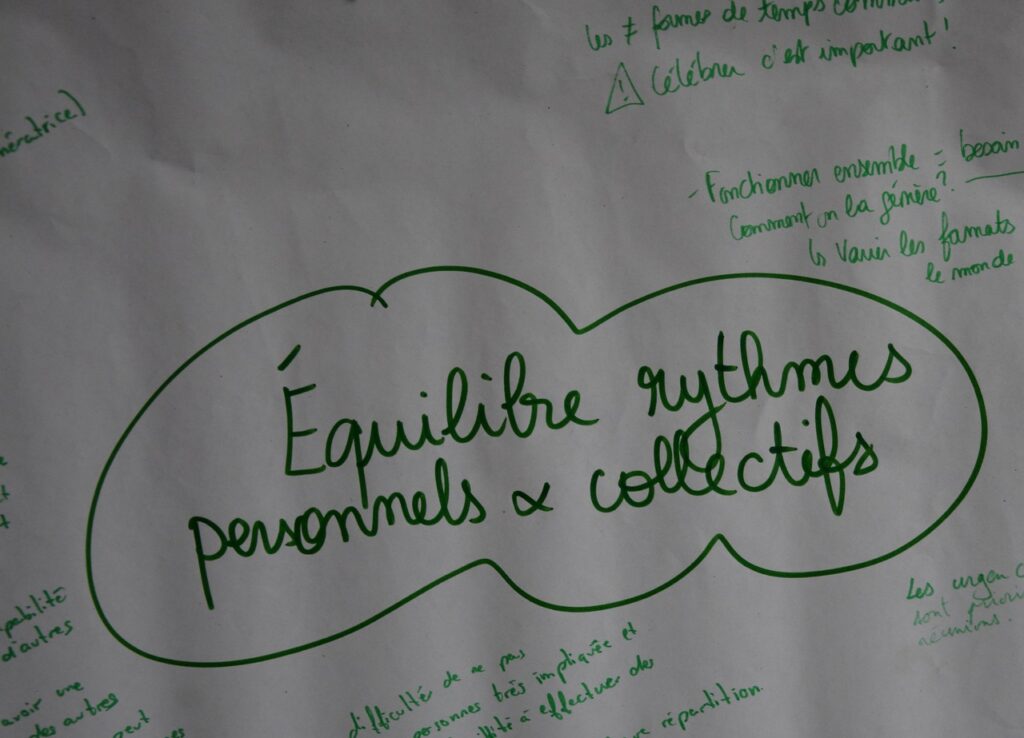 les ≠ formes de temps
⚠ Célébrer c'est important !
nératrice)
- Fonctionner ensemble = besoin
Comment on la génère ?
↳ Varier les formats
le monde
Équilibre rythmes
personnels & collectifs
d'autres
avoir une
des autres
peut
Les urgen
sont priori
réunions.
difficulté de ne pas
personnes très impliquée et
à effectuer des
répartition.